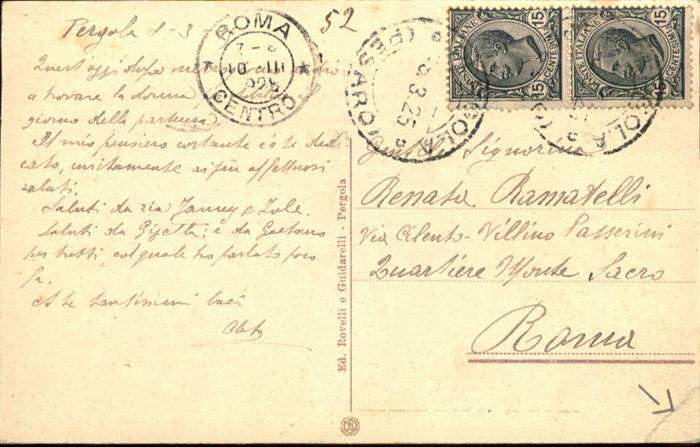 Pergola 8-3
52
Quest'oggi dopo
a trovare la donna
giorno della partenza
Il mio pensiero costante è a te dedi
cato, unitamente ai più affettuosi
saluti.
Saluti da zia Fanny e Iole.
Saluti da Gigetta; e da Gaetano
per tutti, col quale ho parlato poco
fa.
A te tantissimi baci
ROMA
10 III
925
CENTRO
PERGOLA
(PESARO)
8.3.25
POSTE ITALIANE
CENTESIMI
15
POSTE ITALIANE
CENTESIMI
15
Ed. Rovelli e Guidarelli - Pergola
Gentile Signorina
Renata Ramatelli
Via Cilento - Villino Passerini
Quartiere Monte Sacro
Roma